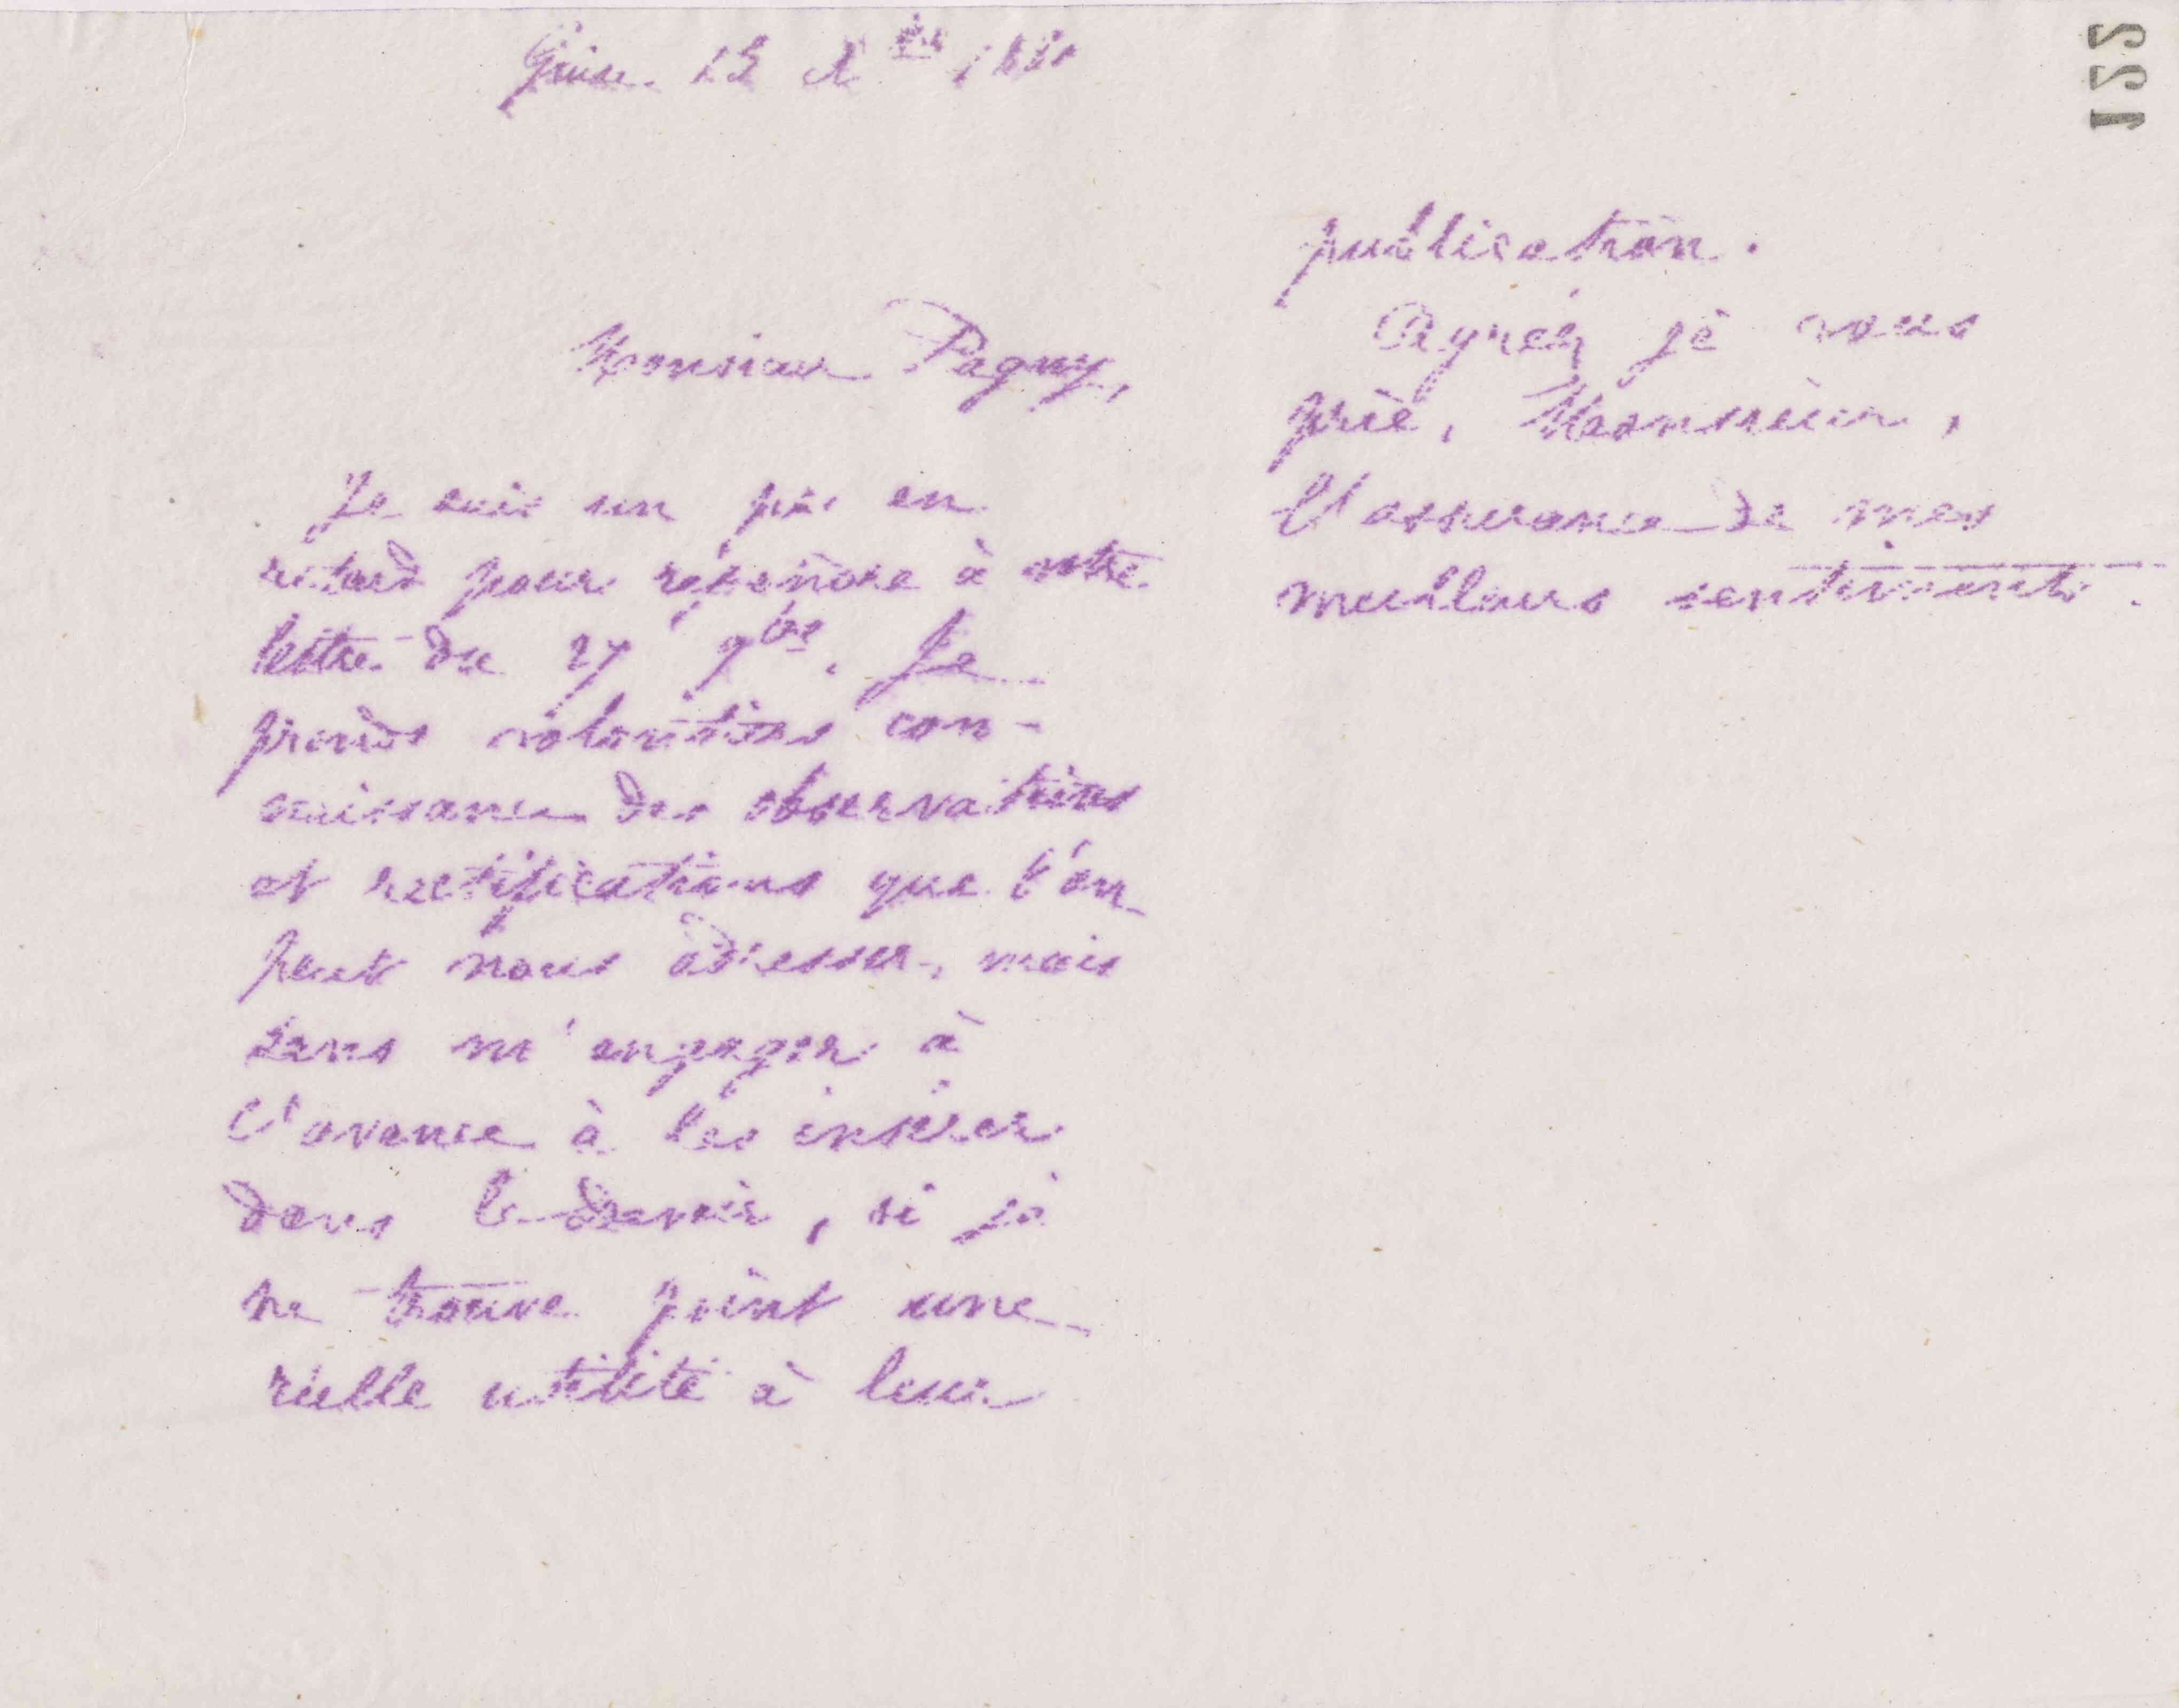 Guise 13 Xbre 1881
Monsieur Pagny,
Je suis un peu en
retard pour répondre à votre
lettre du 27 9bre. Je
prends volontiers con-
naissance des observations
et rectifications que l'on
peut nous adresser, mais
sans m'engager à
l'avance à les insérer
dans le devoir, si je
ne trouve point une
réelle utilité à leur
publication.
Agréez je vous
prie, Monsieur,
l'assurance de mes
meilleurs sentiments.
122